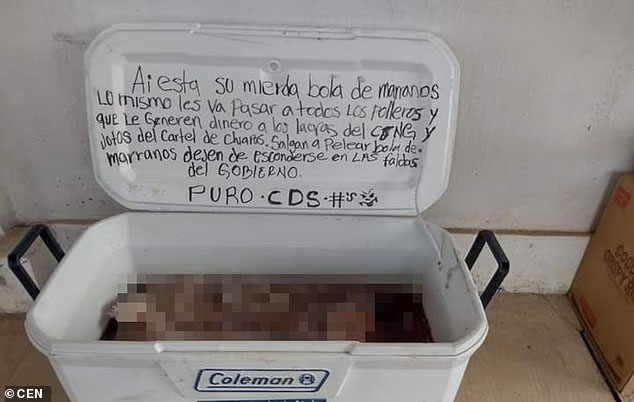 Ai esta su mierda bola de marranos
Lo mismo les va Pasar a todos Los Polleros y
que Le Generen dinero a las lacras del CJNG y
Jotos del Cartel de Chiapas. Salgan a Pelear bola de
marranos dejen de Esconderse en LAS faldas
del GOBIERNO.
PURO.CDS.#
Coleman
© CEN